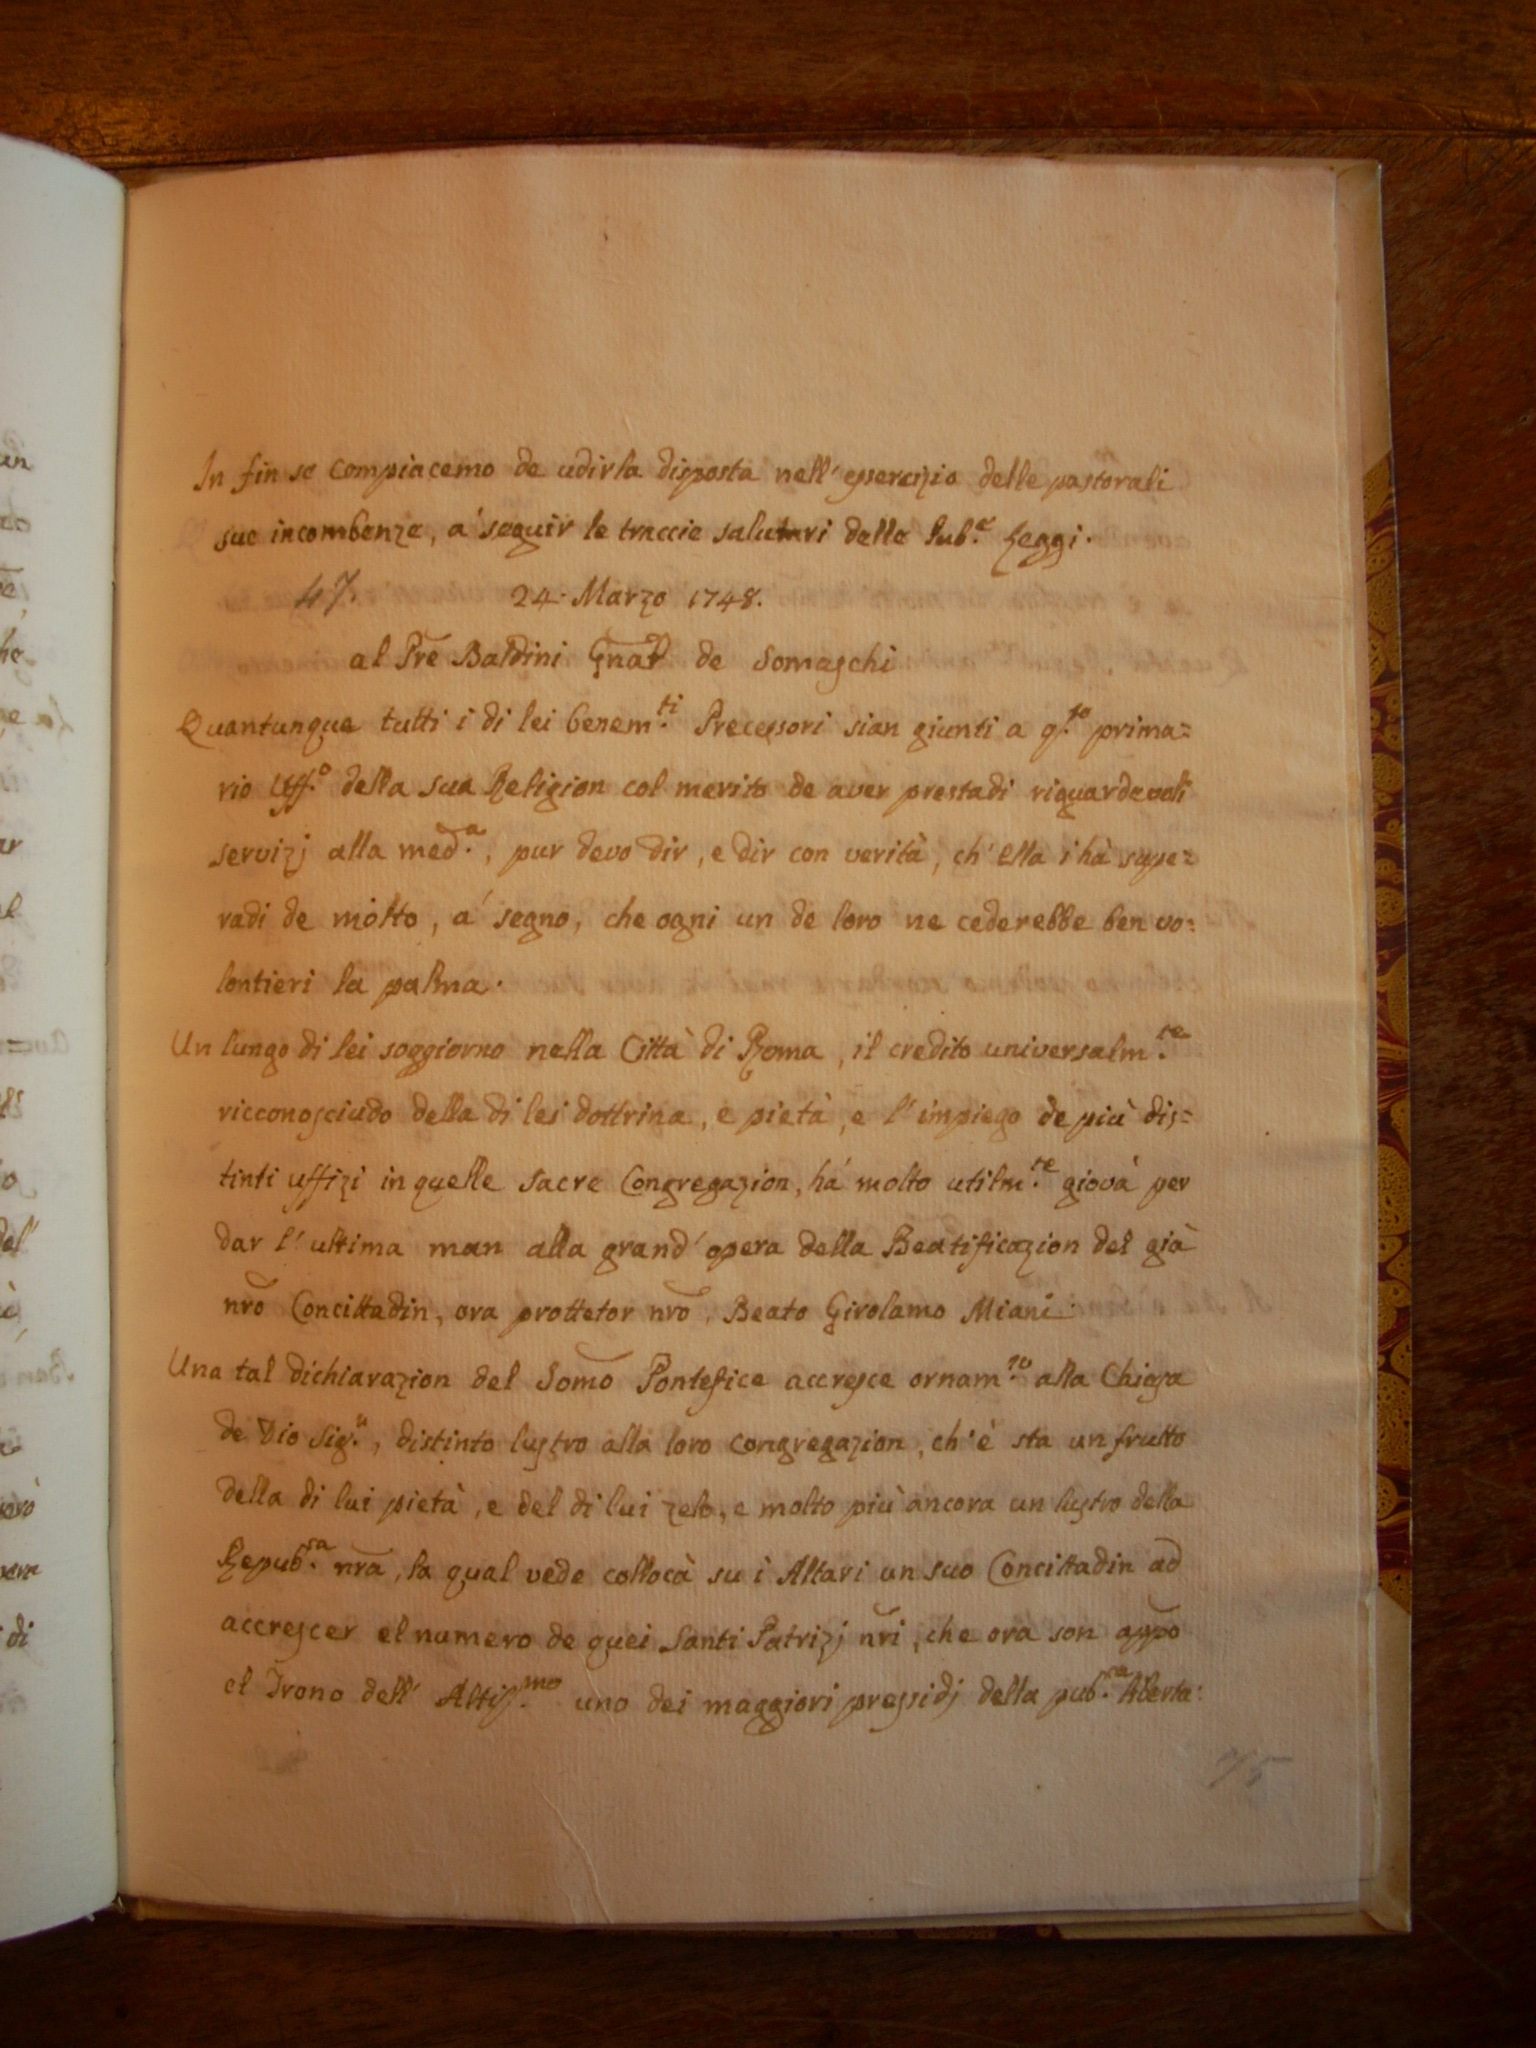 In fin se compiacemo de udirla disposta nell' essercizio delle pastorali
sue incombenze, a' seguir le traccie salutari delle Pub.e Leggi.
47. 24. Marzo 1748.
al Pre Baldini Gnal de Somaschi
Quantunque tutti i di lei benem.ti Precessori sian giunti a q.to prima=
rio Uff.o della sua Religion col merito de aver prestadi riguardevoli
servizj alla med.a, pur devo dir, e dir con verità, ch' ella i hà supe=
radi de molto, a' segno, che ogni un de loro ne cederebbe ben vo=
lontieri la palma.
Un lungo di lei soggiorno nella Città di Roma, il credito universalm.te
ricconosciudo della di lei dottrina, e pietà, e l' impiego de più dis=
tinti uffizi in quelle sacre Congregazion, há molto utilm.te giovà per
dar l' ultima man alla grand' opera della Beatificazion del già
nro Concittadin, ora prottetor nro, Beato Girolamo Miani.
Una tal dichiarazion del Somo Pontefice accresce ornam.to alla Chiesa
de Dio Sig.r, distinto lustro alla loro congregazion, ch' è sta un frutto
della di lui pietà, e del di lui zelo, e molto più ancora un lustro della
Repub.ca nra, la qual vede collocà su i Altari un suo Concittadin ad
accrescer el numero de quei Santi Patrizj nri, che ora son appo
el Trono dell' Altiss.mo uno dei maggiori pressidj della pub.ca libertà.